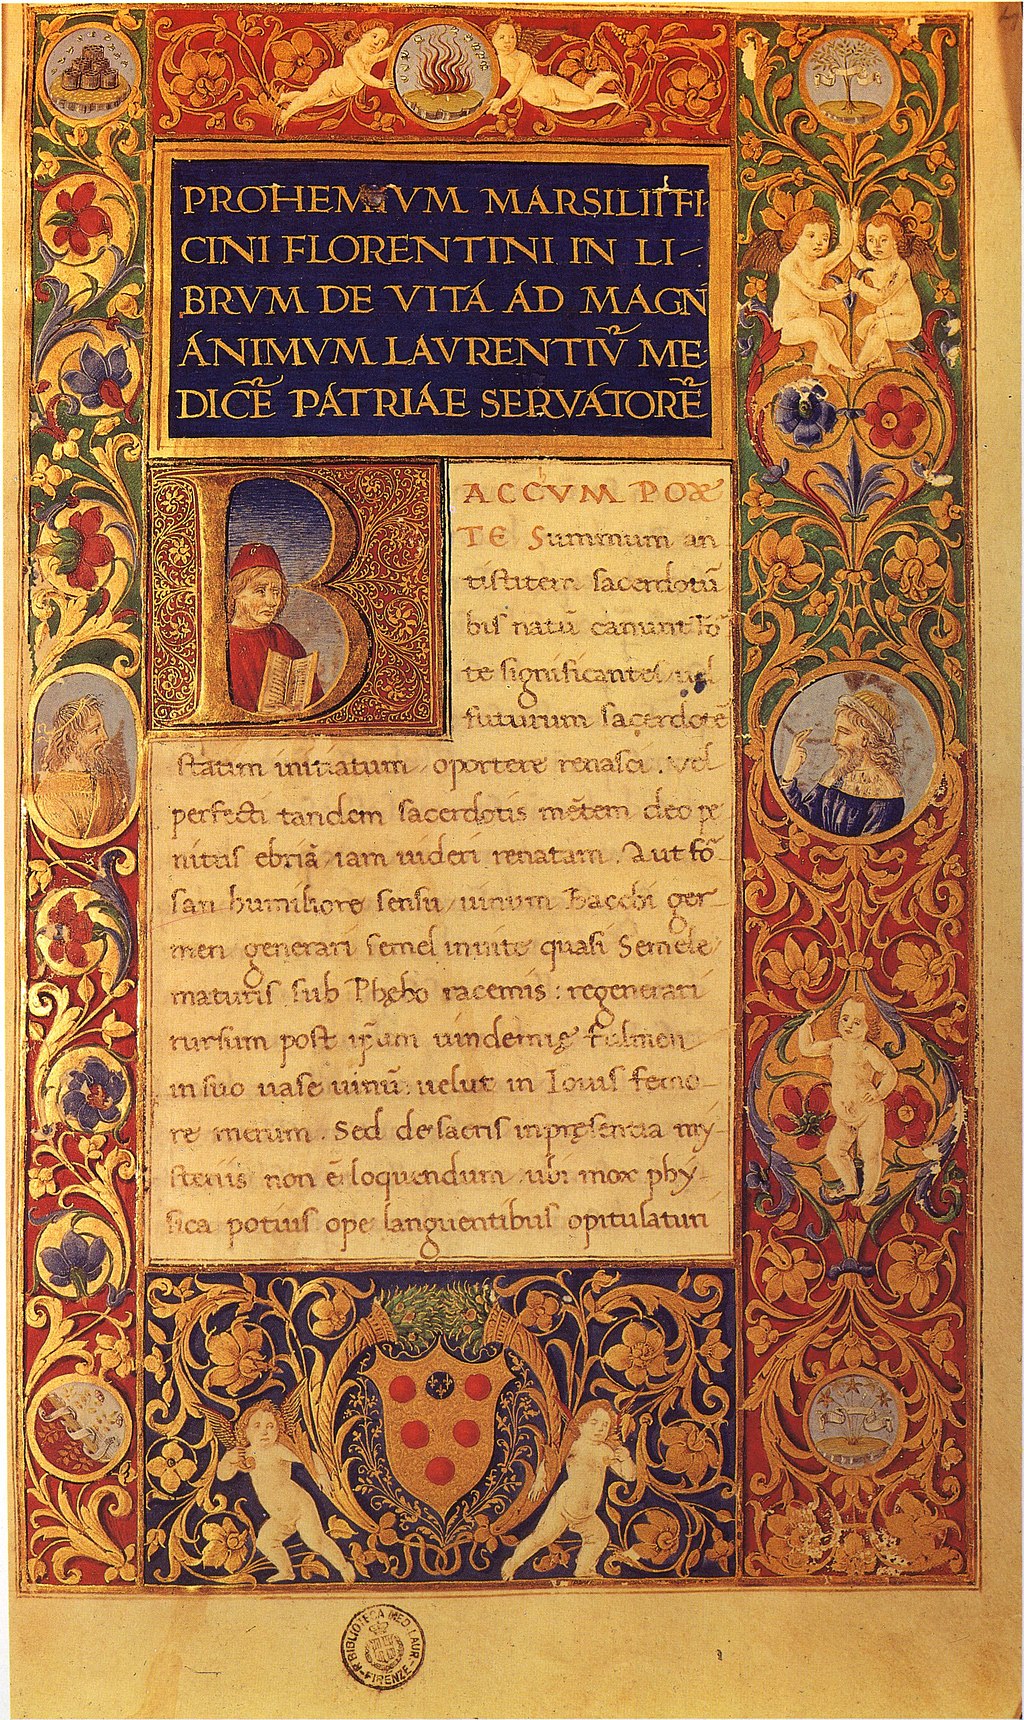 PROHEMIVM MARSILII FI-
CINI FLORENTINI IN LI-
BRVM DE VITA AD MAGN
ANIMVM LAVRENTIṼ ME-
DICẼ PATRIAE SERVATORẼ
BACCVM POE
TE Summum an
tistitem sacerdotũ
bis natũ canunt. fo
te significantes uel
futurum sacerdotẽ
statim initiatum oportere renasci. Vel
perfecti tandem sacerdotis mẽtem deo pe
nitus ebriã iam uideri renatam. Aut fo-
san humiliore sensu uinum Bacchi ger-
men generari semel in uite quasi Semele
maturis sub Phębo racemis: regenerari
rursum post ip̃um uindemię fulmen
in suo uase uinũ: uelut in Iouis femo-
re merum. Sed de sacris in pręsentia my-
steriis non ẽ loquendum ubi mox phy-
sica potius ope languentibus opitulaturi
R·BIBLIOTECA MED·LAUR·
FIRENZE